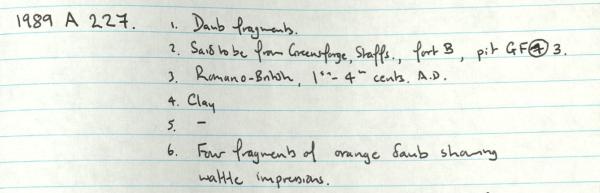 1989 A 227. 1. Daub fragments.
2. Said to be from Greensforge, Staffs., fort B, pit GF④ 3.
3. Romano-British, 1st - 4th cents. A.D.
4. Clay
5. -
6. Four fragments of orange daub showing
wattle impressions.